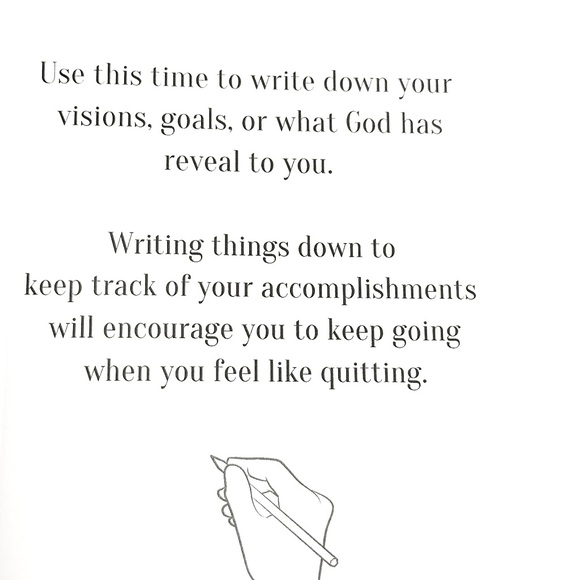 Use this time to write down your
visions, goals, or what God has
reveal to you.
Writing things down to
keep track of your accomplishments
will encourage you to keep going
when you feel like quitting.